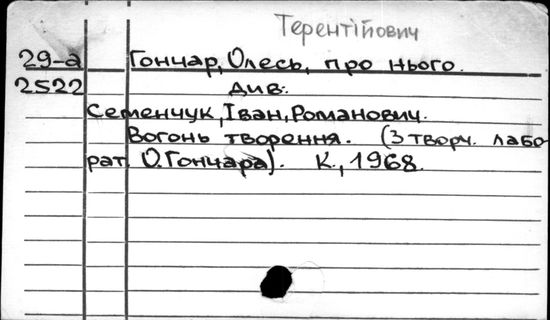 Терентійович
29-а Гончар, Олесь, про нього.
2522 див.
Семенчук, Іван, Романович.
Вогонь творення. (З творч. лабо
рат. О. Гончара). К., 1968.